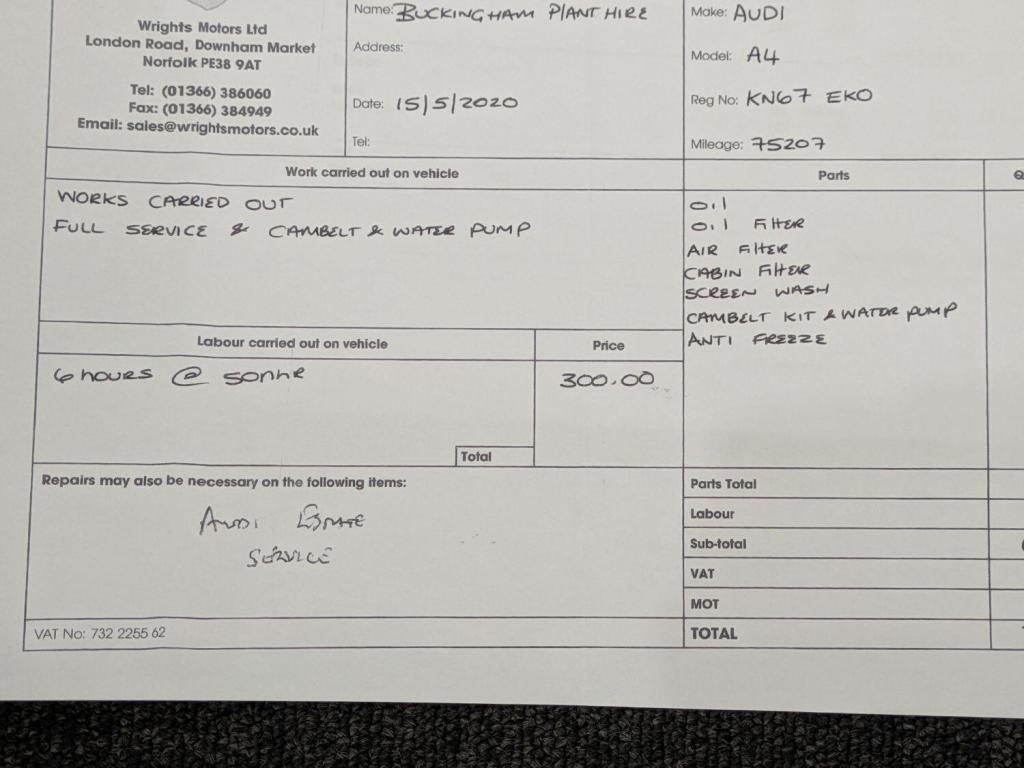 Wrights Motors Ltd
London Road, Downham Market
Norfolk PE38 9AT
Tel: (01366) 386060
Fax: (01366) 384949
Email: sales@wrightsmotors.co.uk
Name: BUCKINGHAM PLANT HIRE
Address:
Date: 15/5/2020
Tel:
Make: AUDI
Model: A4
Reg No: KN67 EKO
Mileage: 75207
Work carried out on vehicle
WORKS CARRIED OUT
FULL SERVICE & CAMBELT & WATER PUMP
Parts
OIL
OIL FILTER
AIR FILTER
CABIN FILTER
SCREEN WASH
CAMBELT KIT & WATER PUMP
ANTI FREEZE
Labour carried out on vehicle
Price
6 HOURS @
300.00
Total
Repairs may also be necessary on the following items:
AUDI ESTATE
SERVICE
Parts Total
Labour
Sub-total
VAT
MOT
TOTAL
VAT No: 732 2255 62